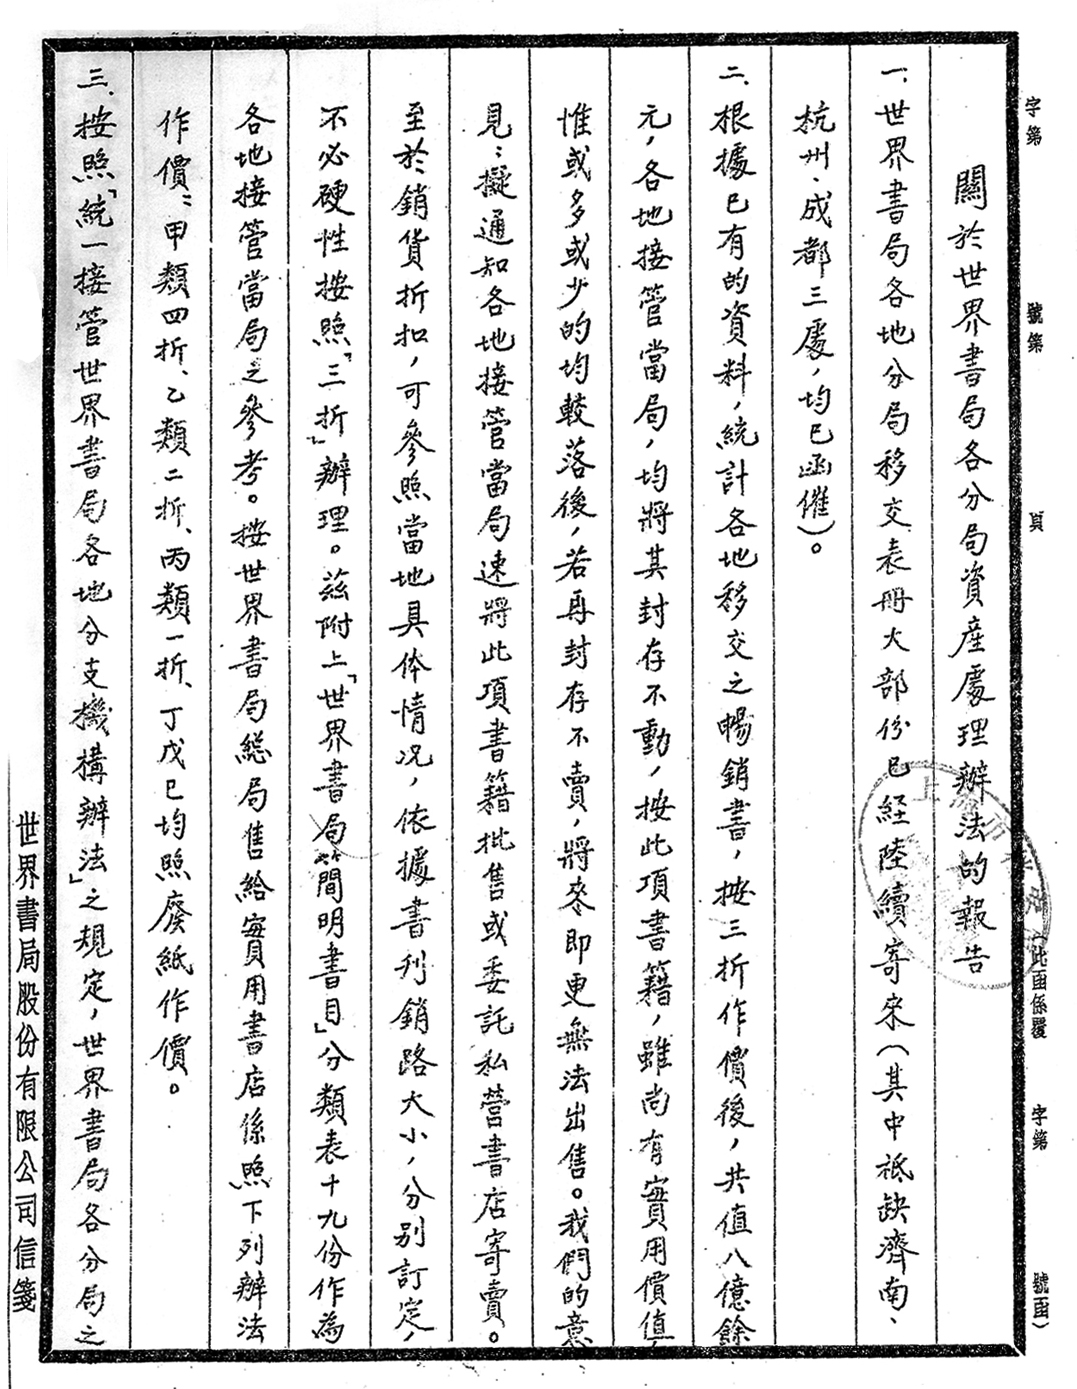 字第
號第
頁
(此函係覆
字第
號函)
關於世界書局各分局資產處理辦法的報告
一、世界書局各地分局移交表冊大部份已経陸續寄來(其中祗缺濟南、
杭州、成都三處,均已函催)。
二、根據已有的資料,統計各地移交之暢銷書,按三折作價後,共值八億餘
元,各地接管當局,均將其封存不動,按此項書籍,雖尚有實用價值,
惟或多或少的均較落後,若再封存不賣,將來即更無法出售。我們的意
見:擬通知各地接管當局速將此項書籍批售或委託私營書店寄賣。
至於銷貨折扣,可參照當地具体情况,依據書刊銷路大小,分別訂定,
不必硬性按照「三折」辦理。茲附上「世界書局簡明書目」分類表十九份作為
各地接管當局之參考。按世界書局總局售給實用書店係照下列辦法
作價:甲類四折、乙類二折、丙類一折、丁戊己均照廢紙作價。
三、按照「統一接管世界書局各地分支機構辦法」之規定,世界書局各分局之
世界書局股份有限公司信箋
上海市